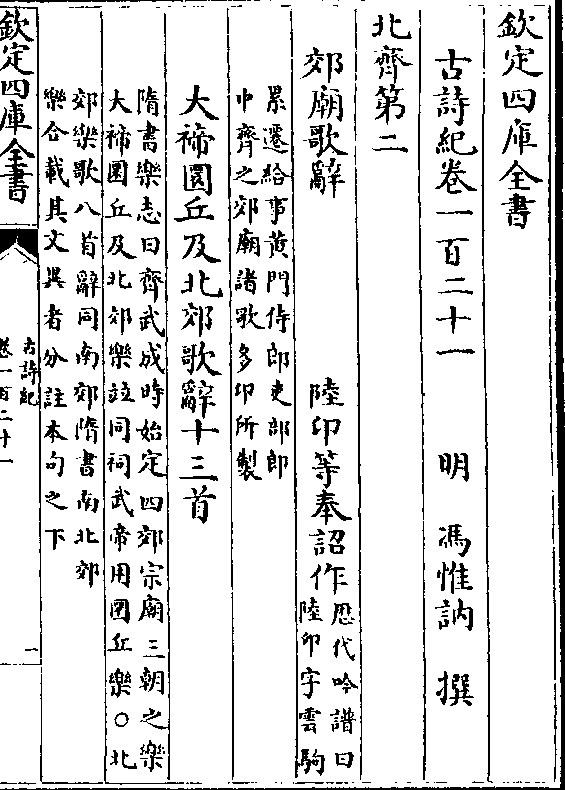 欽定四庫全書
古詩紀卷一百二十一 明 馮惟訥 撰
北齊第二
郊廟歌辭 陸卬等奉詔作 厯代吟譜曰
陸卬字雲駒
累遷給事黄門侍郎吏部郎
中齊之郊廟諸歌多卬所製
大禘圜丘及北郊歌辭十三首
隋書樂志曰齊武成時始定四郊宗廟三朝之樂
大禘圜丘及北郊樂竝同祠武帝用圜丘樂○北
郊樂歌八首辭同南郊隋書南北郊
樂合載其文異者分註本句之下
欽定四庫全書
古詩紀
卷一百二十一
一